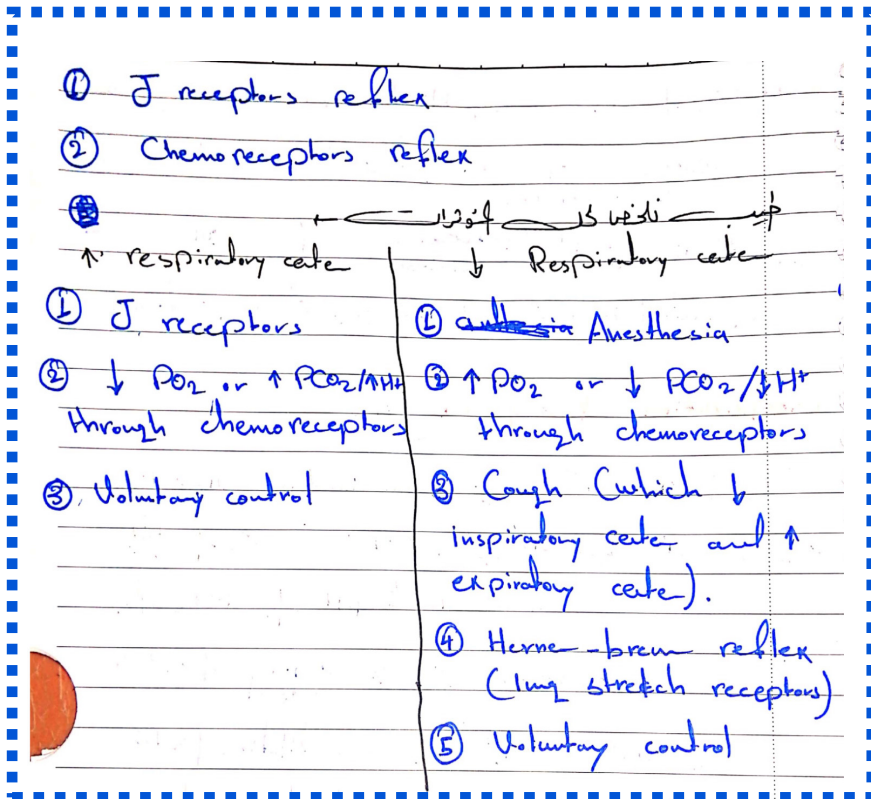 ① J receptors reflex
② Chemoreceptors reflex
طيب نلخص كل المؤثرات
↑ respiratory center
① J receptors
② ↓ PO₂ or ↑ PCO₂/↑H+
through chemoreceptors
③ Voluntary control
↓ Respiratory center
① Anesthesia
② ↑ PO₂ or ↓ PCO₂/↓H⁺
through chemoreceptors
③ Cough (which ↓
inspiratory center and ↑
expiratory center).
④ Herne-breun reflex
(lung stretch receptors)
⑤ Voluntary control